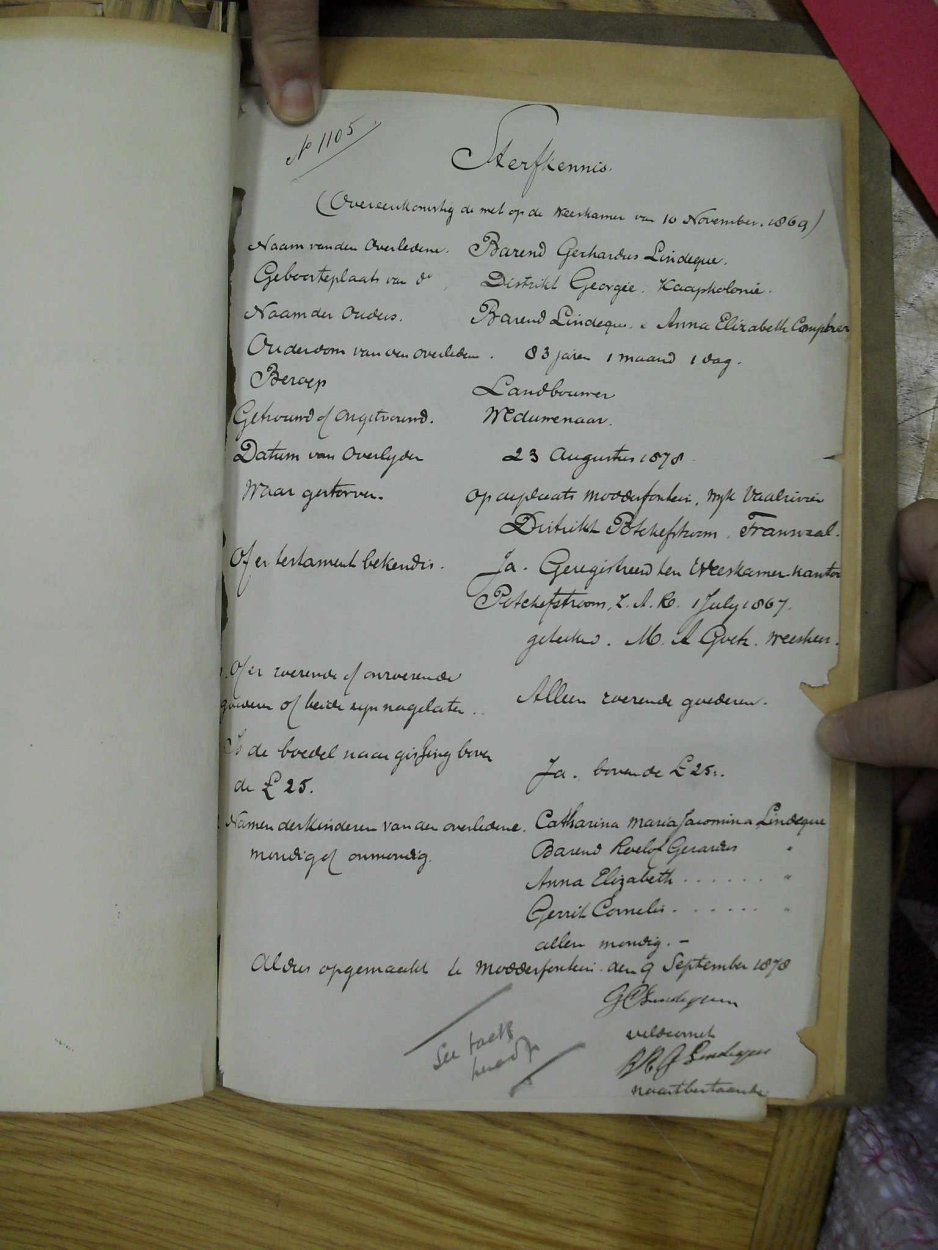 No 1105
Sterfkennis.
(Overeenkomstig de wet op de Weeskamer van 10 November. 1869)
Naam vanden Overledene. Barend Gerhardus Lindeque.
Geboorteplaats van do Distrikt Georgie. Kaapkolonie.
Naam der Ouders. Barend Lindeque. & Anna Elizabeth Campher
Ouderdom van den overledene. 83 jaren 1 maand 1 dag.
Beroep Landbouwer
Getrouwd of ongetrouwd. Weduwenaar.
Datum van Overlyden 23 Augustus 1878
Waar gestorven. op de plaats Modderfontein, wyk Vaalrivier
Distrikt Potchefstroom. Transvaal.
Of er testament bekend is. Ja. Geregistreerd ten Weeskamer. Kantoor
Potchefstroom, Z. A. R. 1 July 1867.
geteekend. M. A Goetz. Weesheer.
Of er roerende of onroerende
goederen of beide zyn nagelaten.. Alleen roerende goederen.
Is de boedel naar gissing boven
de £25. Ja. boven de £25.
Namen der kinderen van den overledene. Catharina Maria Jacomina Lindeque
mondig of onmondig. Barend Roelof Gerardus "
Anna Elizabeth . . . . . . "
Gerrit Cornelis . . . . . . "
allen mondig. –
Aldus opgemaakt te Modderfontein. den 9 September 1878
G C Lindeque
veldcornet
B R G Lindeque
naastbestaande
See back